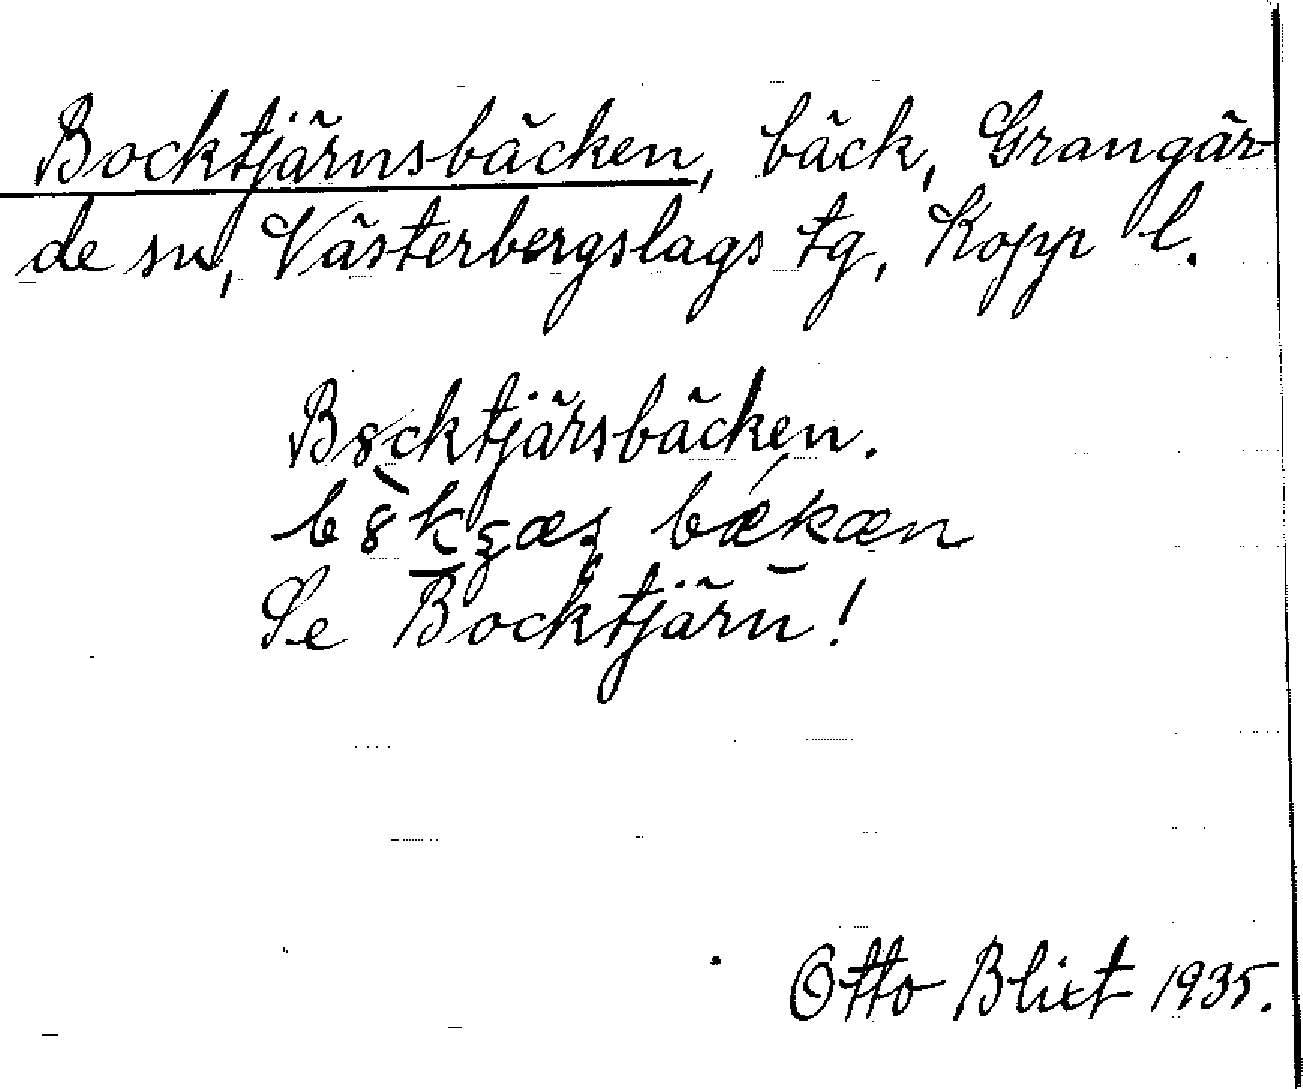 Bocktjärnsbäcken, bäck, Grangär-
de sn, Västerbergslags tg, Kopp l.
B8cktjärsbäcken.
Se Bocktjärn!
Otto Blixt 1935.